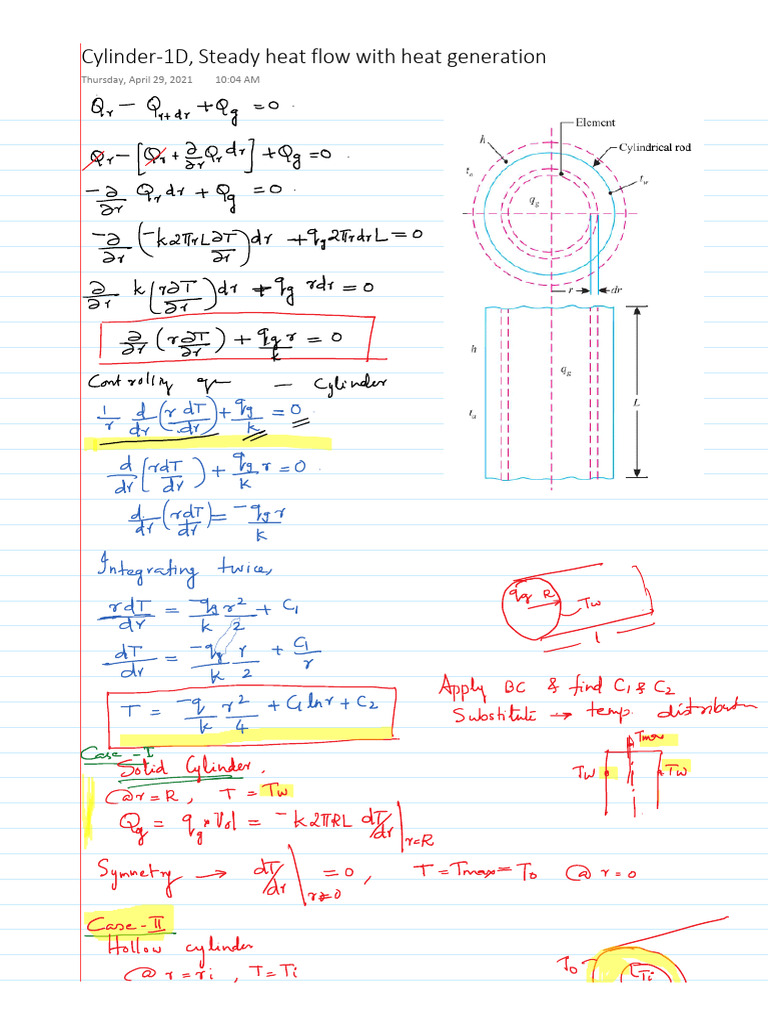 Cylinder-1D, Steady heat flow with heat generation
Thursday, April 29, 2021 10:04 AM
Qr − Qr+dr + Qg = 0
Qr − [Qr + ∂/∂r Qr dr] + Qg = 0
−∂/∂r Qr dr + Qg = 0
−∂/∂r (−k2πrL ∂T/∂r) dr + qg 2πrdrL = 0
∂/∂r k (r∂T/∂r) dr + qg rdr = 0
∂/∂r (r∂T/∂r) + qg r/k = 0
Controlling qn — Cylinder
1/r d/dr (r dT/dr) + qg/k = 0
d/dr (rdT/dr) + qg/k r = 0
d/dr (rdT/dr) = −qg r/k
Integrating twice,
rdT/dr = −qg/k r²/2 + C1
dT/dr = −qg/k r/2 + C1/r
T = −q/k r²/4 + C1 ln r + C2
Element
h
Cylindrical rod
ta
tw
qg
r
dr
h
qg
L
ta
qg R
Tw
l
Apply BC & find C1 & C2
Substitute → temp. distribution
Tmax
Tw Tw
Case-I
Solid Cylinder,
@r=R, T = Tw
Qg = qg * Vol = −k2πRL dT/dr|r=R
Symmetry → dT/dr|r=0 = 0, T = Tmax = To @ r=0
Case-II
Hollow cylinder
@ r = ri, T = Ti
To
Ti